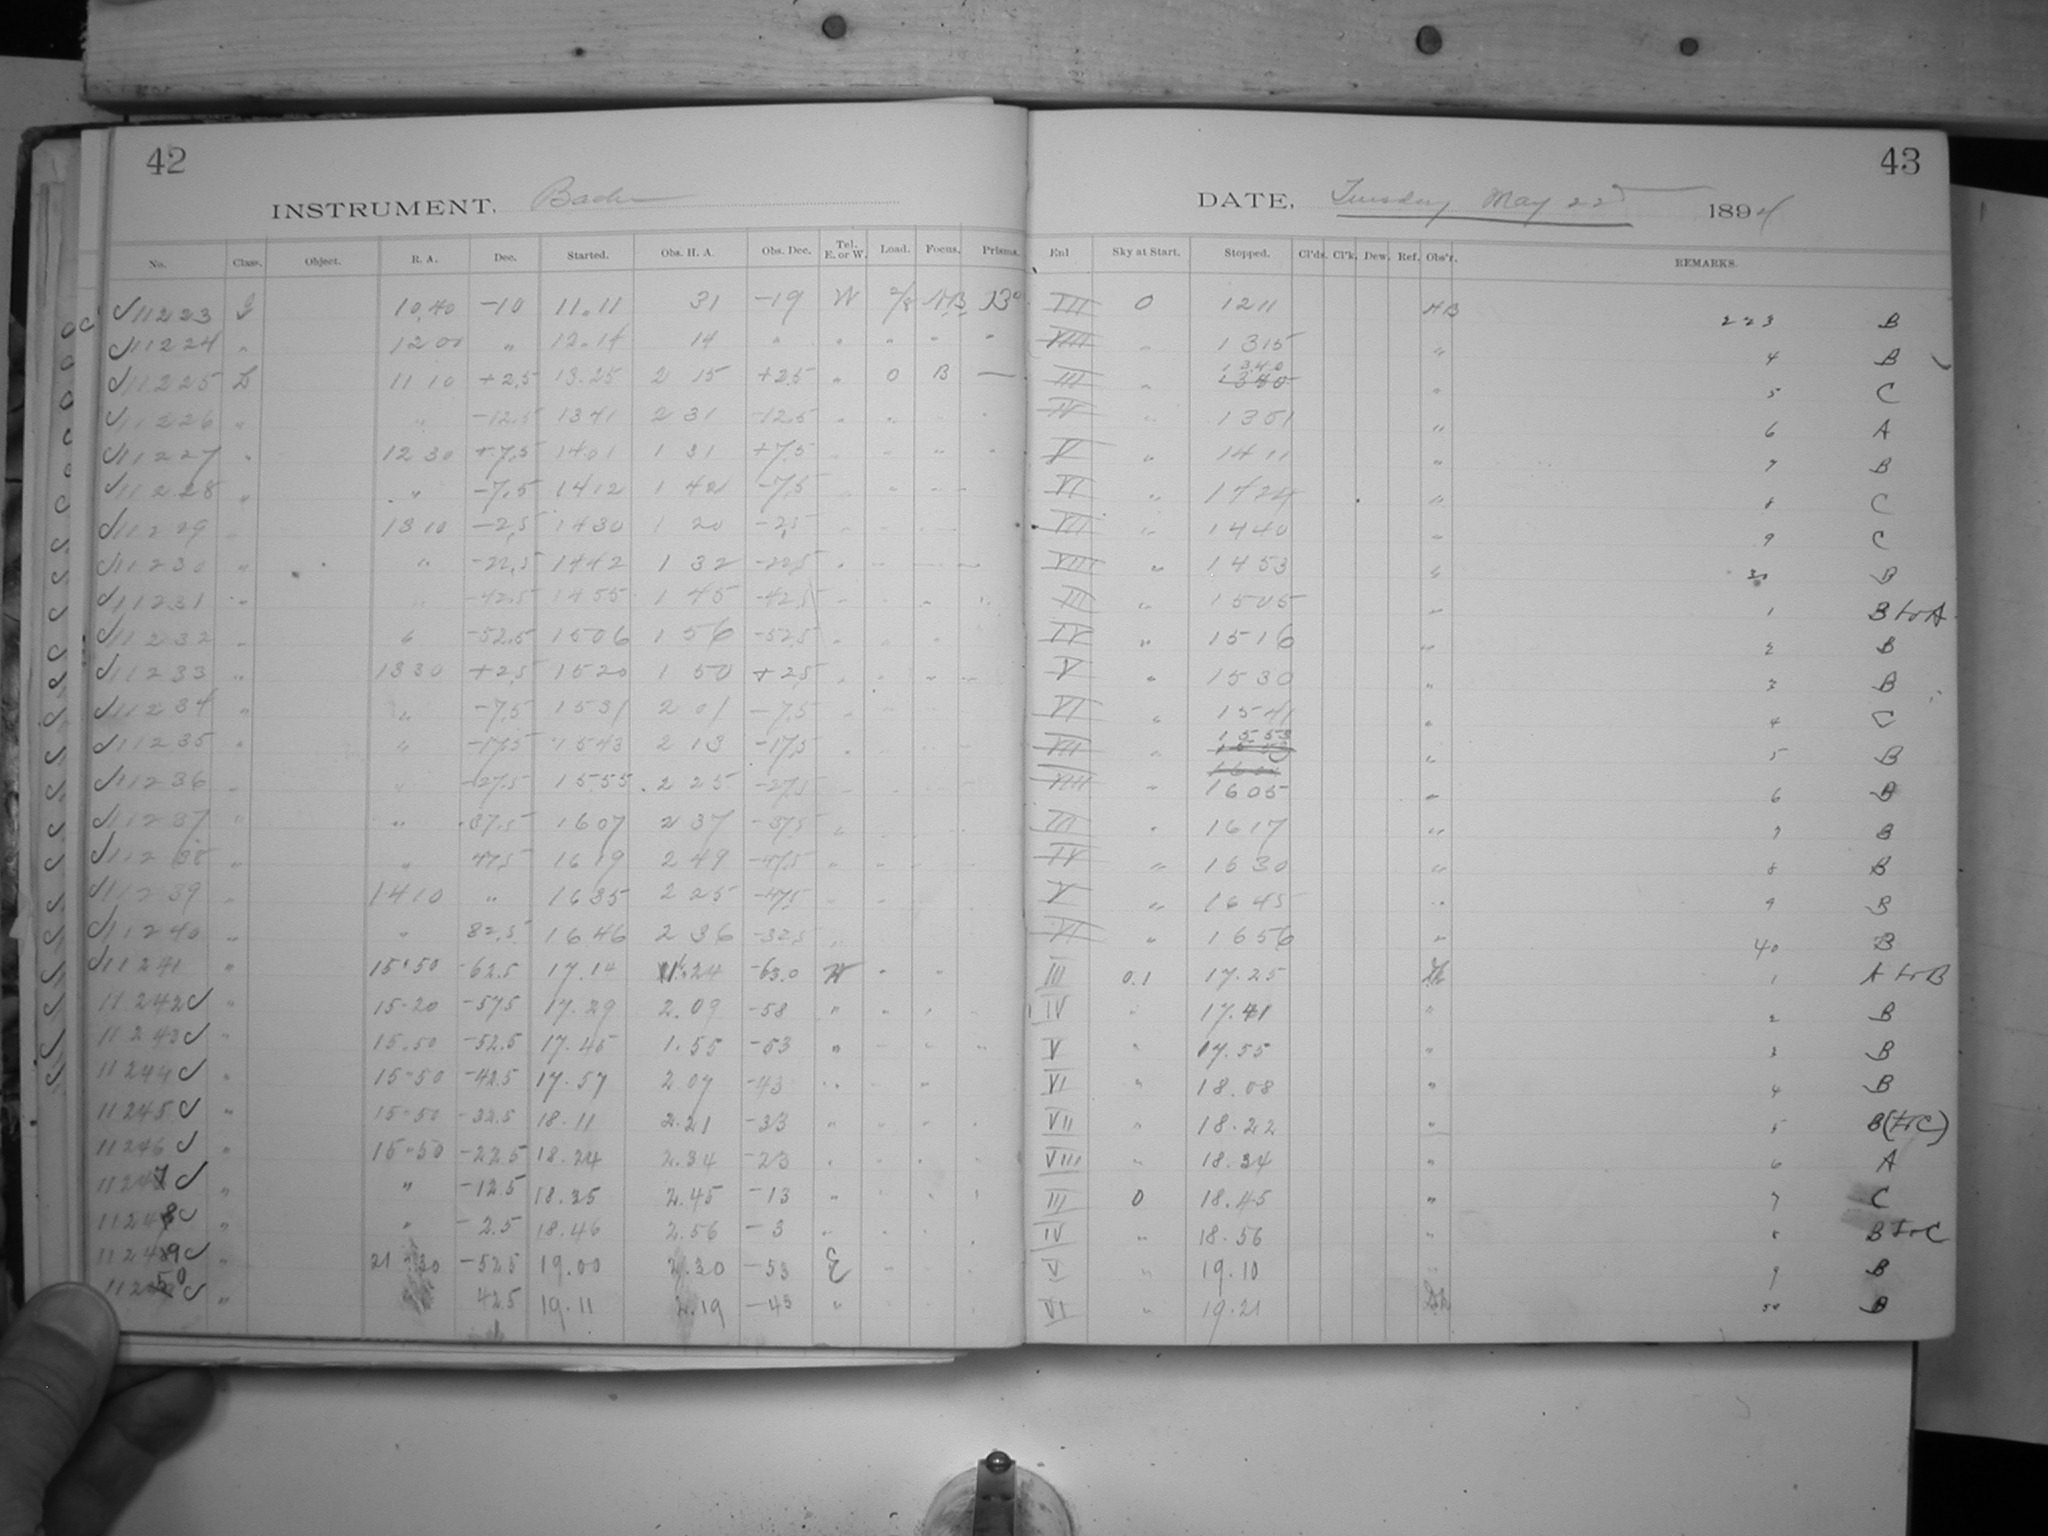 42
43
INSTRUMENT, Bache
DATE, Tuesday May 22d 1894
No. Class. Object. R. A. Dec. Started. Obs. H. A. Obs. Dec. Tel. E. or W. Load. Focus. Prisms. Enl Sky at Start. Stopped. Cl'ds. Cl'k. Dew. Ref. Obs'r. REMARKS.
11223 10.40 -10 11.11 31 -19 W AB VII 0 1211 AB 223 B
11224 " 1200 " 12.14 14 " " " " " VIII " 1315 " 4 B
11225 1110 +2.5 13.25 2 15 +2.5 " 0 B — III " 1340 " 5 C
11226 " " -12.5 1341 2 31 -12.5 " " IV " 1351 " 6 A
11227 " 1230 +7.5 1401 1 31 +7.5 " " " " V " 1411 " 7 B
11228 " " -7.5 1412 1 42 -7.5 VI " 1424 " 8 C
11229 1310 -2.5 1430 1 20 -2.5 VII " 1440 " 9 C
11230 " " -22.5 1442 1 32 -22.5 " VIII " 1453 " 30 B
11231 " " -42.5 1455 1 45 -42.5 III " 1505 " 1 B to A
11232 " -52.5 1506 1 56 -52.5 IV " 1516 " 2 B
11233 " 1330 +2.5 1520 1 50 +2.5 V " 1530 " 3 B
11234 " " -7.5 1531 2 01 -7.5 VI " 1541 " 4 C
11235 " " -17.5 1543 2 13 -17.5 VII " 1553 " 5 B
11236 " " -27.5 1555 2 25 -27.5 VIII " 1605 " 6 B
11237 " " -37.5 1607 2 37 -37.5 " III " 1617 " 7 B
11238 " " 47.5 1619 2 49 -47.5 " IV " 1630 " 8 B
11239 " 1410 " 1635 2 25 -47.5 V " 1645 " 9 B
11240 " " 32.5 1646 2 36 -32.5 " VI " 1656 " 40 B
11241 " 15.50 -62.5 17.14 1.24 -63.0 W " " III 0.1 17.25 1 A to B
11242 " 15.20 -57.5 17.29 2.09 -58 " " " " IV " 17.41 " 2 B
11243 " 15.50 -52.5 17.45 1.55 -53 " " " " V " 17.55 " 3 B
11244 " 15.50 -42.5 17.57 2.07 -43 " " " VI " 18.08 " 4 B
11245 " 15.50 -32.5 18.11 2.21 -33 " " " " VII " 18.22 " 5 B(to C)
11246 " 15.50 -22.5 18.24 2.34 -23 " " " " VIII " 18.34 " 6 A
11247 " " -12.5 18.35 2.45 -13 " " " " III 0 18.45 " 7 C
11248 " " -2.5 18.46 2.56 -3 " " " " IV " 18.56 " 8 B to C
11249 " 21.30 -52.5 19.00 2.30 -53 E " " " V " 19.10 " 9 B
11250 " 42.5 19.11 2.19 -43 " VI " 19.21 50 B